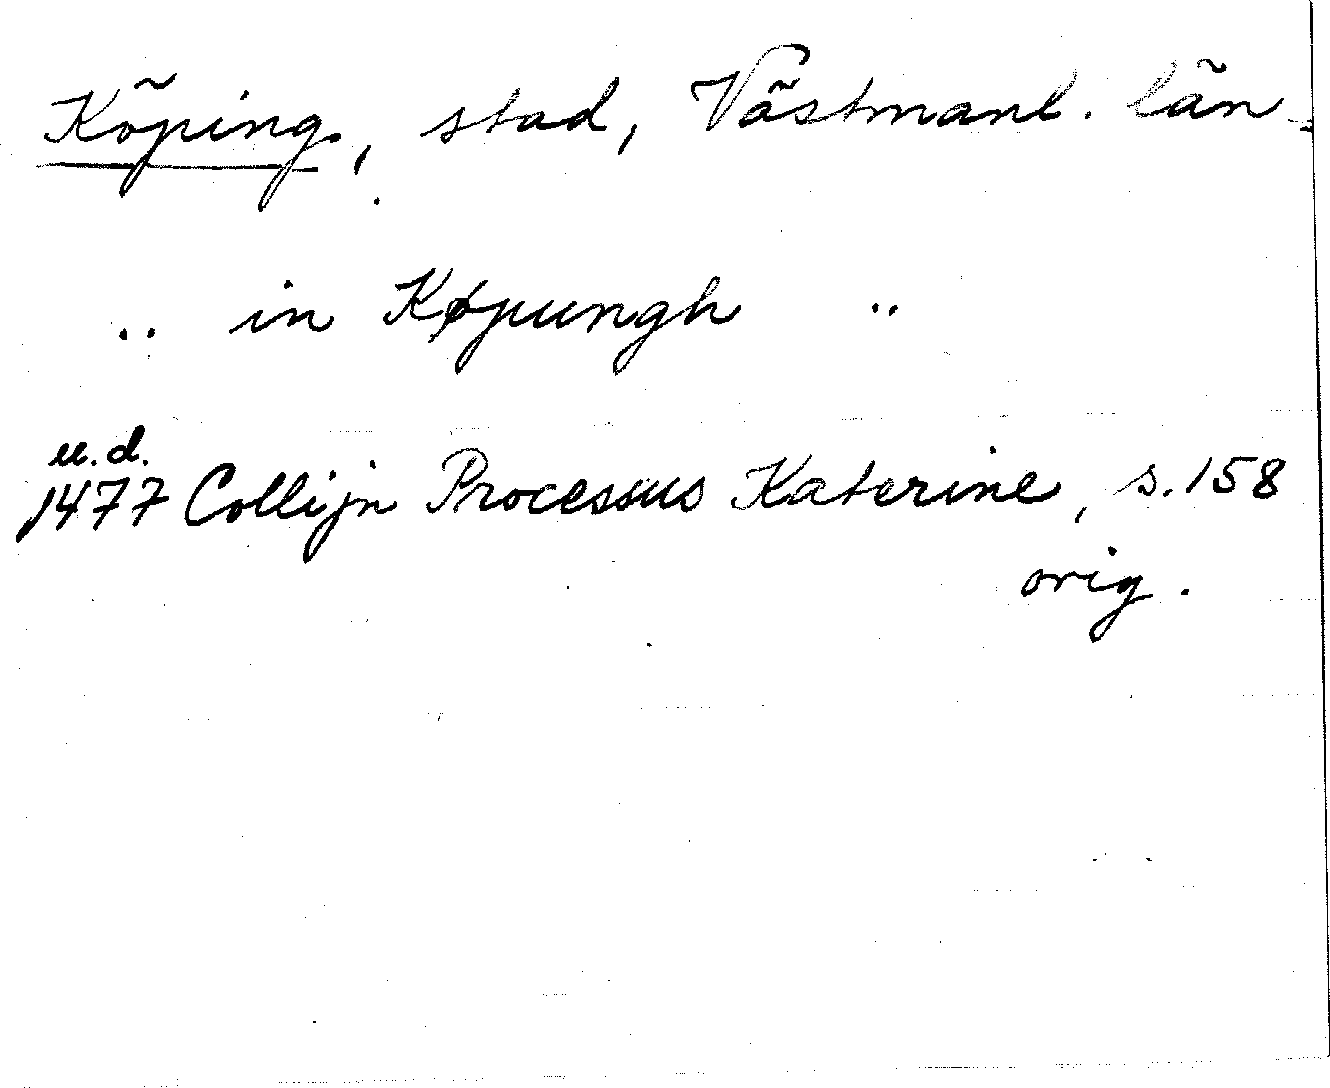 Köping, stad, Västmanl. län.
.. in Køpungh ..
u.d.
1477 Collijn Processus Katerine, s. 158
orig.